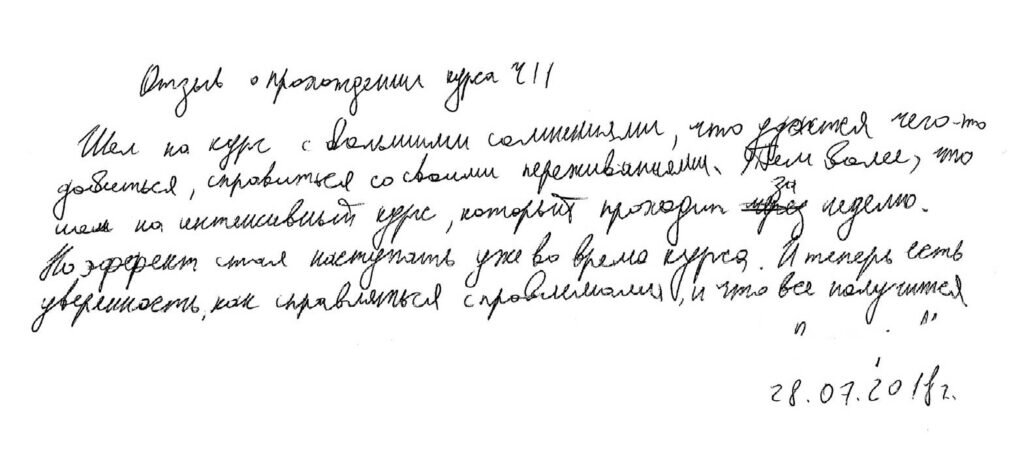 Отзыв о прохождении курса ЧІІ
Шел на курс с большими сомнениями, что удастся чего-то
добиться, справиться со своими переживаниями. Тем более, что
шел на интенсивный курс, который проходил за неделю.
Но эффект стал наступать уже во время курса. И теперь есть
уверенность, как справляться с проблемами, и что все получится
28.07.2018г.